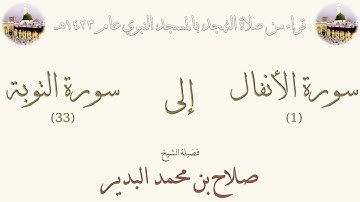 قراءة من صلاة التهجد بالمسجد النبوي عام ١٤٢٣هـ
سورة الأنفال إلى سورة التوبة
(1) (33)
فضيلة الشيخ
صلاح بن محمد البدير